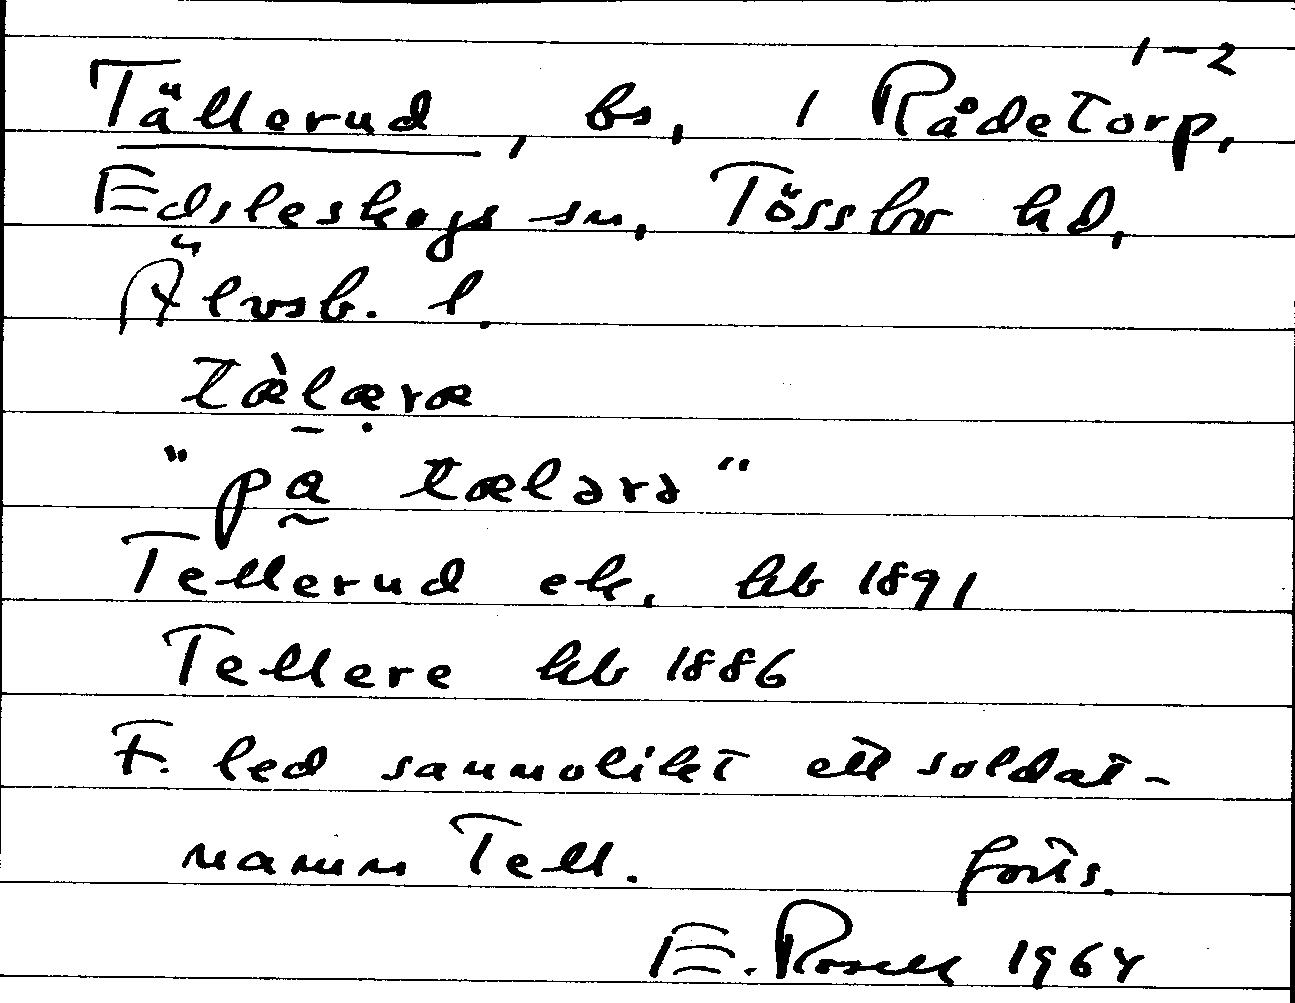 1-2
Tällerud, bs, i Rådetorp,
Edsleskogs sn, Tössbo hd,
Älvsb. l.
tæ̀læ̣ræ
"pa̰ tælərə"
Tellerud ek. kb 1891
Tellere kb 1886
F. led sannolikt ett soldat-
namn Tell. forts.
E. Rosell 1964